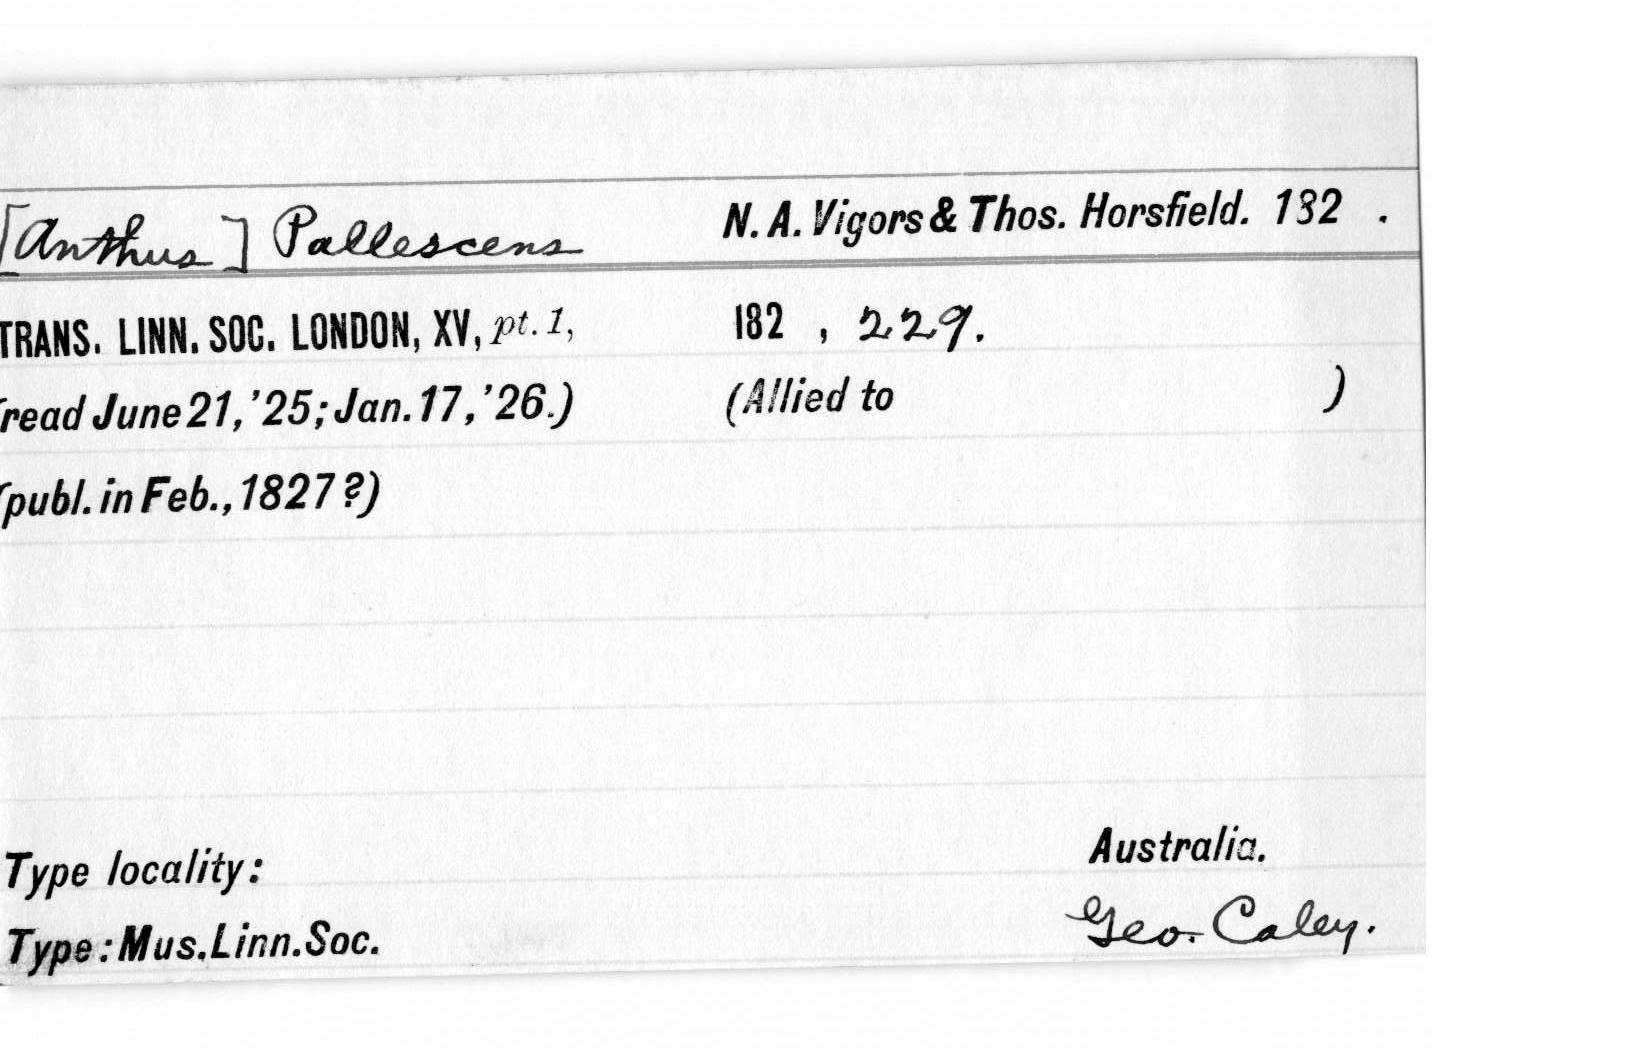 [Anthus] Pallescens N. A. Vigors & Thos. Horsfield. 182 .
TRANS. LINN. SOC. LONDON, XV, pt. 1, 182 , 229.
(read June 21, '25; Jan. 17, '26.) (Allied to )
(publ. in Feb., 1827?)
Type locality: Australia.
Type: Mus. Linn. Soc. Geo. Caley.